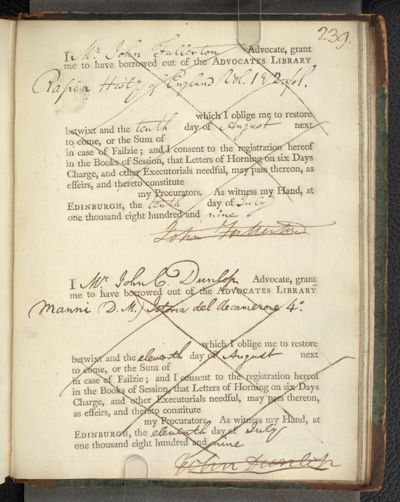 239.
I Mr. John Fullerton Advocate, grant
me to have borrowed out of the ADVOCATES LIBRARY
Rapin Histy of England Vol. 1 & 2. fol.
which I oblige me to restore
betwixt and the tenth day of August next
to come, or the Sum of
in case of Failzie; and I consent to the registration hereof
in the Books of Session, that Letters of Horning on six Days
Charge, and other Executorials needful, may pass thereon, as
effeirs, and thereto constitute
my Procurators. As witness my Hand, at
EDINBURGH, the tenth day of July
one thousand eight hundred and nine
John Fullerton
I Mr. John C. Dunlop Advocate, grant
me to have borrowed out of the ADVOCATES LIBRARY
Manni (D. M.) Istoria del decamerone 4o.
which I oblige me to restore
betwixt and the eleventh day of August next
to come, or the Sum of
in case of Failzie; and I consent to the registration hereof
in the Books of Session, that Letters of Horning on six Days
Charge, and other Executorials needful, may pass thereon,
as effeirs, and thereto constitute
my Procurators. As witness my Hand, at
EDINBURGH, the eleventh day of July
one thousand eight hundred and nine
John Dunlop